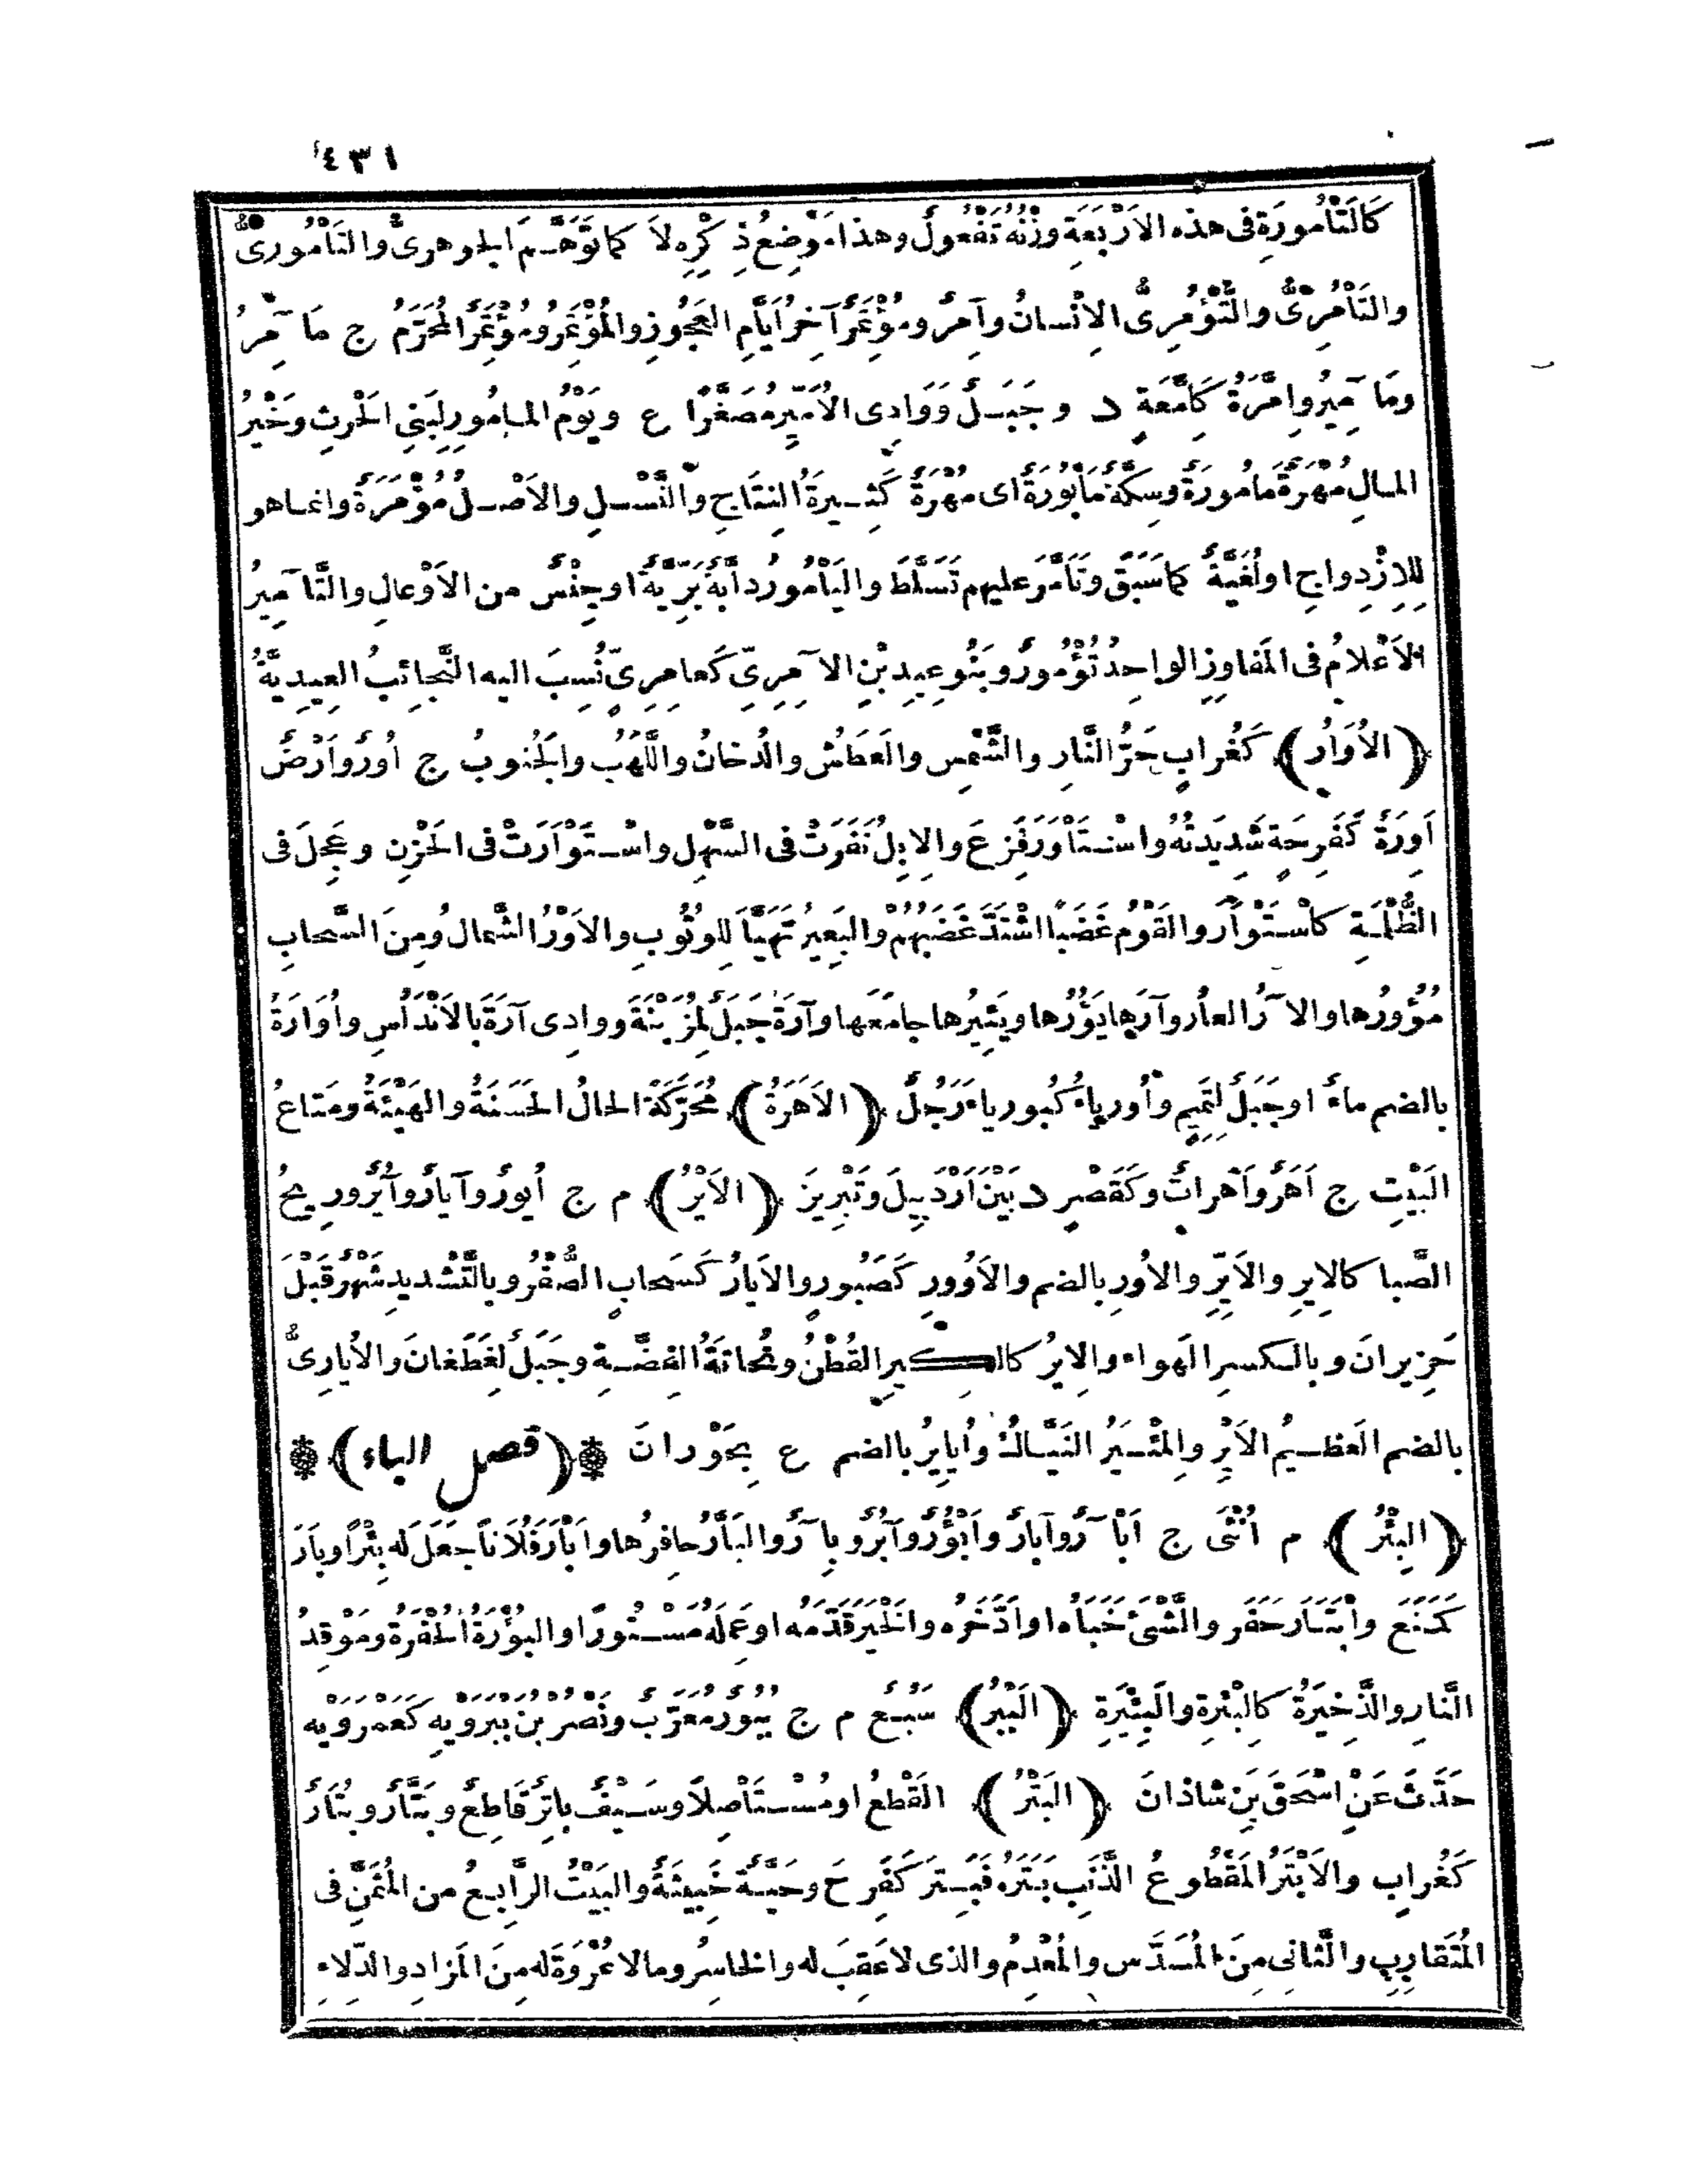 ٤٣١
كَالتَّأْمُورَةِ فى هذه الاَرْبَعَةِ وزْنُهُ تَفْعُولٌ وهذا مَوْضِعُ ذِكْرِهِ لاَ كما تَوَهَّمَ الجوهرىُّ والتَأْمُورىُّ
والتَأْمُرِىُّ والتُّؤْمُرِىُّ الاِنْسانُ وآمِرٌ ومُؤْتَمِرٌ آخِرُ اَيَّامِ العَجُوزِ والمُؤْتَمِرُ ومُؤْتَمِرٌ المُحَرَّمُ ج مَآ مِرُ
ومَآ مِيرُ واِمَّرَةُ كَاِمَّعَةٍ د و جَبَلٌ ووَادِى الاُمَيِّرِ مُصَغَّرًا ع ويَوْمُ المامُورِ لِبَنِى الحٰرِثِ وخَيْرُ
المالِ مُهْرَةٌ مامُورَةٌ وسِكَّةٌ مَأْبُورَةٌ اى مُهْرَةٌ كَثِيرَةُ النِتَاجِ والنَّسْلِ والاَصْلُ مُؤْمَرَةٌ وانماهو
لِلِازْدِواجِ اولُغَيَّةٌ كما سَبَقَ وتَأَمَّرَ عليهم تَسَلَّطَ واليَأْمُورُ دابَّةٌ بَرِّيَّةٌ اوجِنْسٌ من الاَوْعالِ والتَّآ مِيرُ
الاَعْلامُ فى المَفاوِزِ الواحِدُ تُؤْمُورٌ وبَنُو عِيدِ بْنِ الآ مِرِىِّ كَعامِرِىٍّ نُسِبَ اليه النَّجائِبُ العِيدِيَّةُ
(الاُوَارُ) كَغُرابٍ حَرُّ النَّارِ والشَّمْسِ والعَطَشُ والدُخانُ واللَّهَبُ والجَنُوبُ ج اُورٌ واَرْضٌ
اَوِرَةٌ كَفَرِحَةٍ شَدِيدَتُهُ واسْتَأْوَرَ فَزِعَ والاِبِلُ نَفَرَتْ فى السَّهْلِ واسْتَوْأَرَتْ فى الحَزْنِ وعَجِلَ فى
الظُّلْمَةِ كاسْتَوْأَرَ والقَوْمُ غَضَبًا اشْتَدَّ غَضَبُهُمْ والبَعِيرُ تَهَيَّأَ لِلْوُثُوبِ والاَوْرُ الشَّمالُ ومِنَ السَّحابِ
مُؤُورُها والآ رُ العارُ وآرَها يَؤُرُها ويَئِيرُها جامَعَها وآرَةُ جَبَلٌ لِمُزَيْنَةَ ووادِى آرَةَ بالاَنْدَلُسِ واُوَارَةُ
بالضم ماءٌ اوجَبَلٌ لِتَمِيمٍ واُورِياءُ كبُورياءَ رَجُلٌ (الاَهَرَةُ) مُحَرَّكَةً الحالُ الحَسَنَةُ والهَيْئَةُ ومَتاعُ
البَيْتِ ج اَهَرٌ واَهَراتٌ وكَقَصْرٍ د بَيْنَ اَرْدَبِيلَ وتَبْرِيزَ (الاَيْرُ) م ج اُيُورٌ وآيارٌ وآيُرٌ ورِيحُ
الصَّبا كالاِيرِ والاَيِّرِ والاُورِ بالضم والاَوُورِ كَصَبُورٍ والاَيارُ كَسَحابٍ الصُّفْرُ وبالتَّشْديدِ شَهْرٌ قَبْلَ
حَزِيرانَ وبالكسرِ الهواء والاِيرُ كالكِيرِ القُطْنُ ونُحاتَةُ الفِضَّةِ وجَبَلٌ لِغَطَفانَ والاُيارِىُّ
بالضم العَظِيمُ الاَيْرِ والمِئْيَرُ النَيَّاكُ واُيايِرُ بالضم ع بِحَوْرانَ (فصل الباء)
(البِئْرُ) م اُنْثَى ج اَبْآ رٌ وآبارٌ واَبْؤُرٌ وآبُرٌ وبِآ رٌ والبَأَّرُ حافِرُها واَبْأَرَ فُلاَنًا جَعَلَ له بِئْرًا وبَأَرَ
كَمَنَعَ وابْتَأَرَ حَفَرَ والشَّىْءَ خَبَأَهُ اوادَّخَرَه والخَيْرَ قَدَّمَه اوعَمِلَهُ مَسْتُورًا والبُؤْرَةُ الحُفْرَةُ ومَوْقِدُ
النَّارِ والذَّخِيرَةُ كالبِئْرَةِ والبَئِيرَةِ (البَبْرُ) سَبُعٌ م ج بُبُورٌ مُعَرَّبٌ ونَصْرُ بنُ بَبْرَوَيْهِ كَعَمْرَوَيْه
حَدَّثَ عَنْ اِسْحٰقَ بنِ شاذانَ (البَتْرُ) القَطْعُ اومُسْتَأْصِلاً وسَيْفٌ باتِرٌ قَاطِعٌ وبَتَّارٌ وبُتَارٌ
كَغُرابٍ والاَبْتَرُ المَقْطُوعُ الذَّنَبِ بَتَرَهُ فَبَتِرَ كَفَرِحَ وحَيَّةٌ خَبِيثَةٌ والبَيْتُ الرَّابِعُ من المُثَمَّنِ فى
المُتَقارِبِ والثَّانِى مِنَ المُسَدَّسِ والمُعْدِمُ والذى لاعَقِبَ له والخاسِرُ ومالاعُرْوَةَ له مِنَ المَزادِ والدِّلاءِ